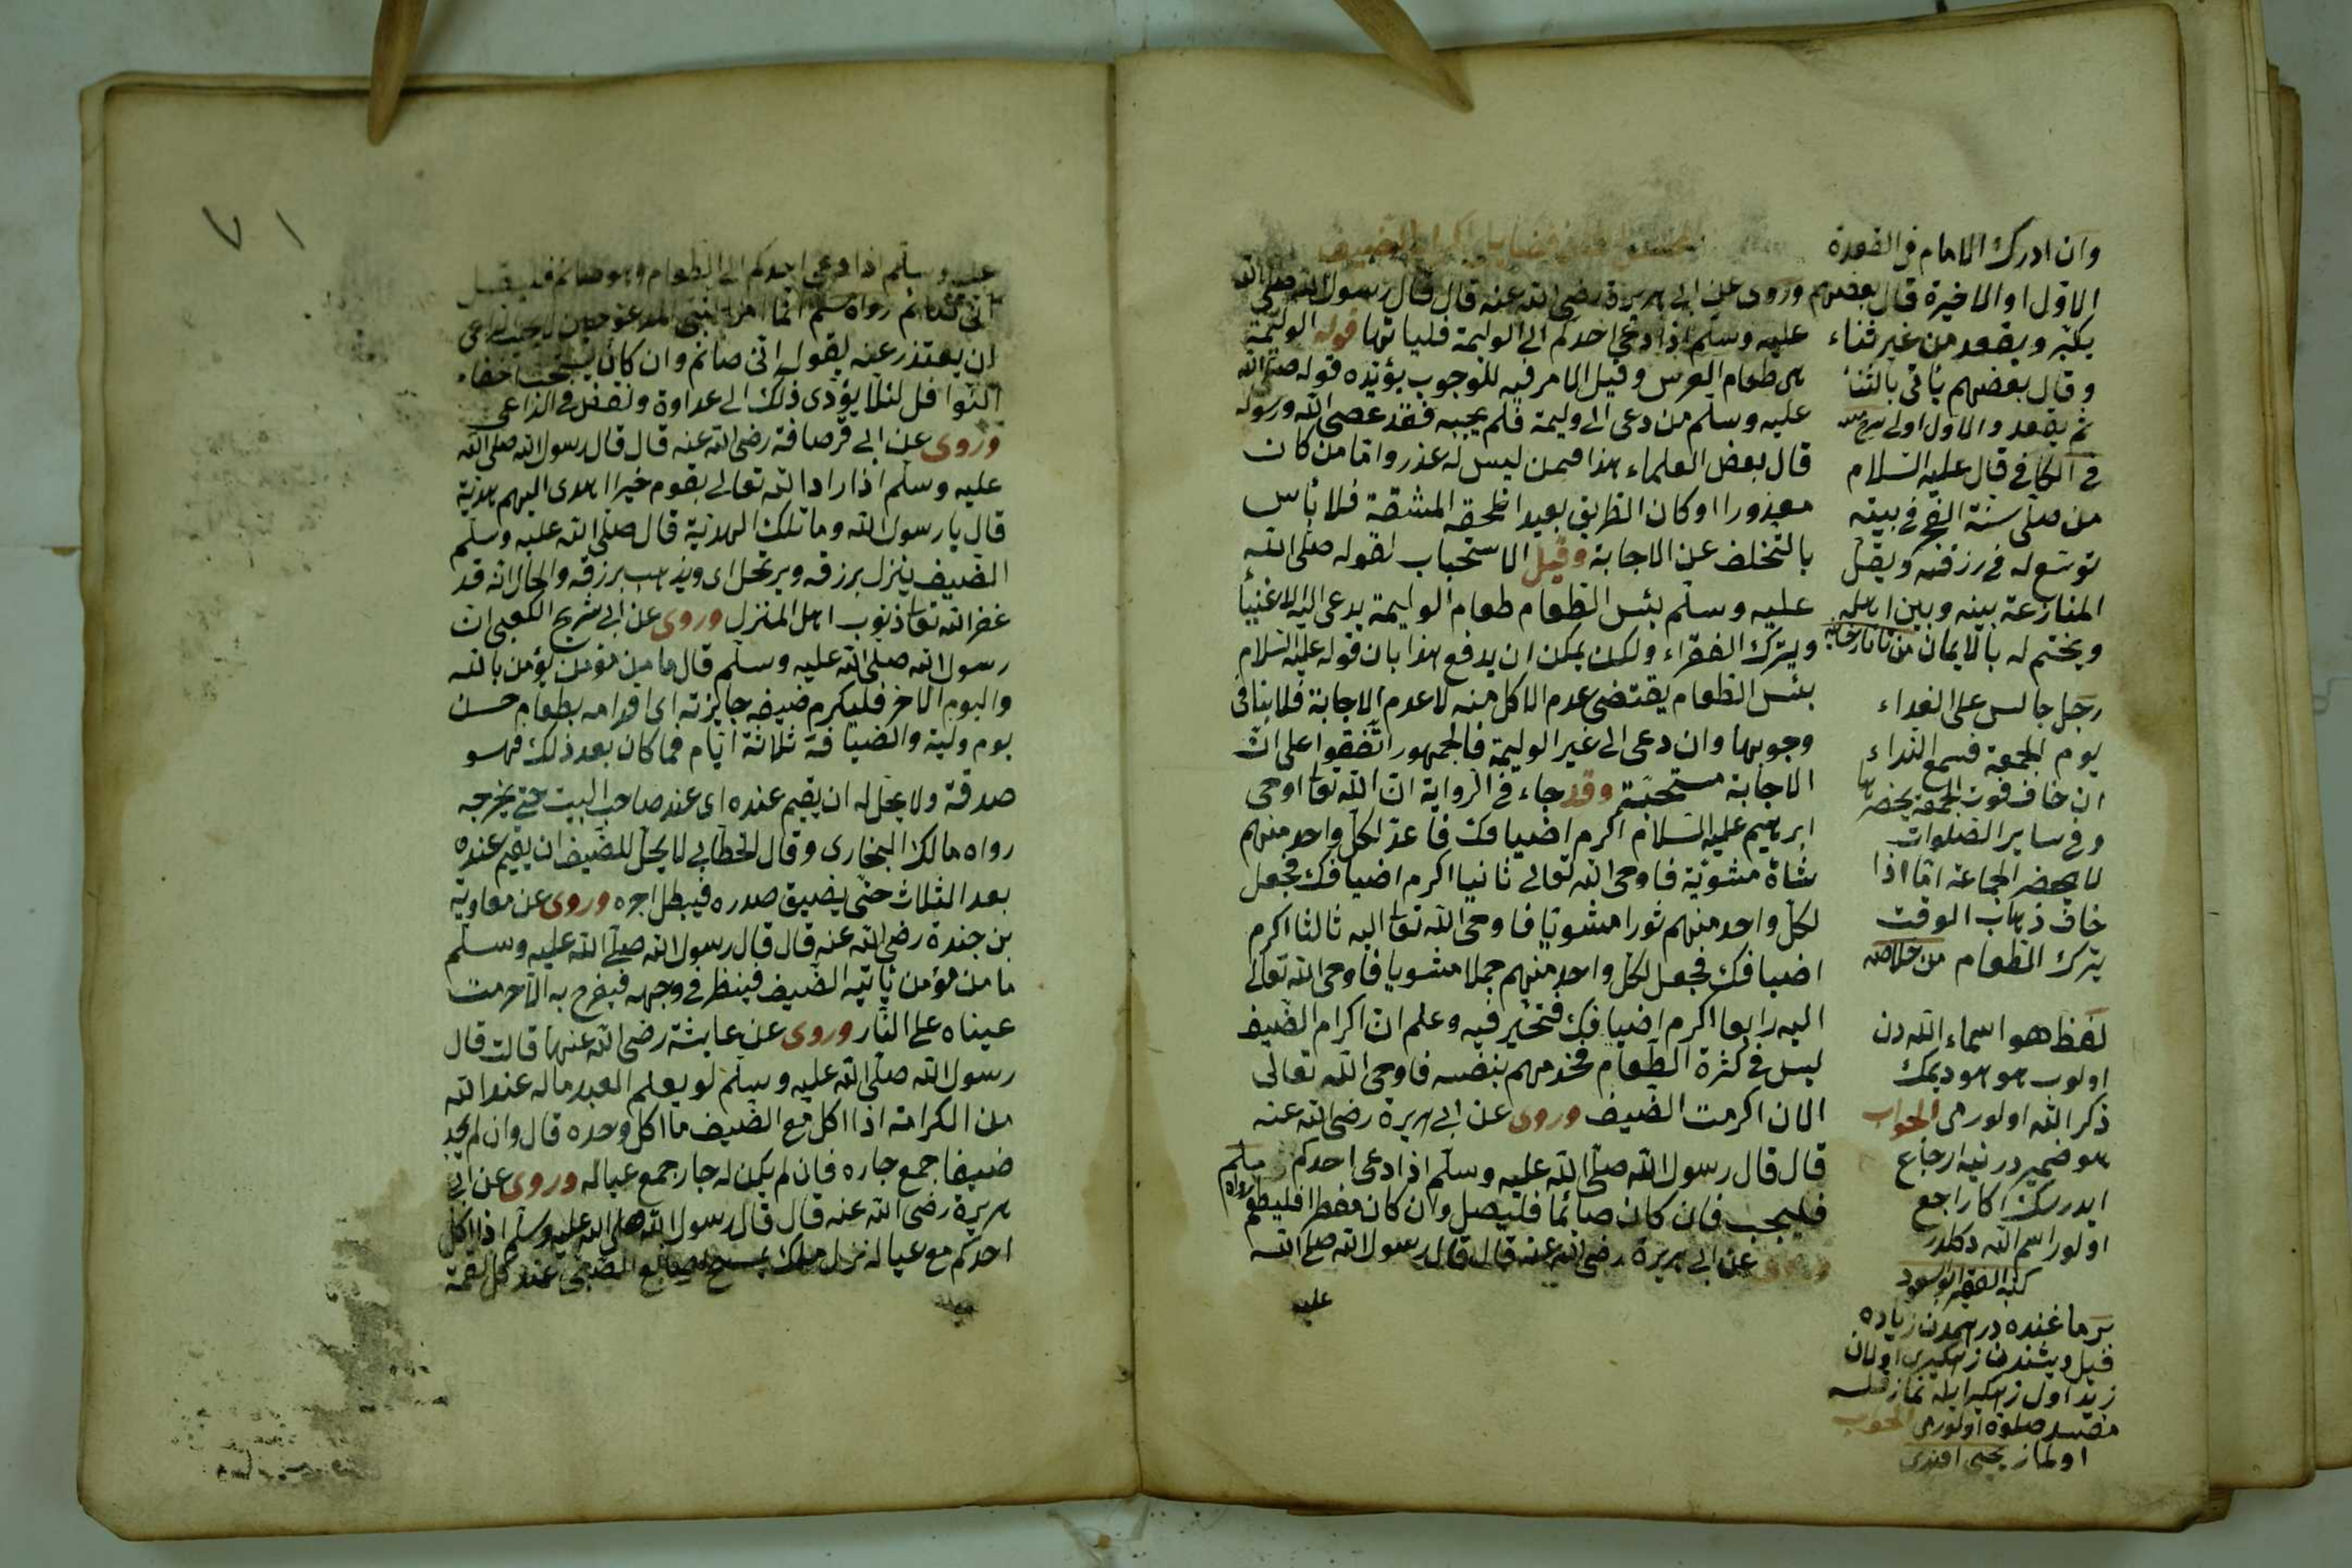 فى فضايل اكرام الضيف
وروى عن ابى هريرة رضى الله عنه قال قال رسول الله صلى الله
عليه وسلم اذا دعى احدكم الى الوليمة فلياتها قوله الوليمة
هى طعام العرس وقيل الامر فيه للوجوب يؤيده قوله صلى الله
عليه وسلم من دعى الى وليمة فلم يجبه فقد عصى الله ورسوله
قال بعض العلماء هذا فيمن ليس له عذر واما من كان
معذورا او كان الطريق بعيدا تلحقه المشقة فلا بأس
بالتخلف عن الاجابة وقيل الاستحباب لقوله صلى الله
عليه وسلم بئس الطعام طعام الوليمة يدعى اليه الاغنيأ
ويترك الفقراء ولكن يمكن ان يدفع هذا بان قوله عليه السلام
بئس الطعام يقتضى عدم الاكل منه لا عدم الاجابة فلا ينافى
وجوبها وان دعى الى غير الوليمة فالجمهور اتفقوا على ان
الاجابة مستحبة وقد جاء فى الرواية ان الله تعا اوحى
ابرهيم عليه السلام اكرم اضيافك فاعد لكل واحد منهم
شاة مشوية فاوحى الله تعالى ثانيا اكرم اضيافك فجعل
لكل واحد منهم ثورا مشويا فاوحى الله تعا اليه ثالثا اكرم
اضيافك فجعل لكل واحد منهم جملا مشويا فاوحى الله تعالى
اليه رابعا اكرم اضيافك فتحير فيه وعلم ان اكرام الضيف
ليس فى كثرة الطعام فخدمهم بنفسه فاوحى الله تعالى
الان اكرمت الضيف وروى عن ابى هريرة رضى الله عنه
قال قال رسول الله صلى الله عليه وسلم اذا دعى احدكم
فليجب فان كان صائما فليصل وان كان مفطرا فليطعم رواه مسلم
وروى عن ابى هريرة رضى الله عنه قال قال رسول الله صلى الله
عليه
وان ادرك الامام فى القعدة
الاول او الاخيرة قال بعضهم
يكبر ويقعد من غير ثناء
وقال بعضهم يأتى بالثنا
ثم يقعد والاول اولى
فى الكافى قال عليه السلام
من صلى سنة الفجر فى بيته
توسع له فى رزقه ويقل
المنازعة بينه وبين اهله
ويختم له بالايمان من تاتارخانيه
رجل جالس على الغداء
يوم الجمعة فسمع النداء
ان خاف فوت الجمعة يحضرها
وفى ساير الصلوات
لا يحضر الجماعة اما اذا
خاف ذهاب الوقت
يترك الطعام من خلاصه
لفظ هو اسماء الله دن
اولوب هو هو ديمك
ذكر الله اولورمى الجواب
هو ضميردر نيه ارجاع
ايدرسك اكا راجع
اولور اسم الله دكلدر
كتبه الفقير ابو السعود
بر ما غنده درهمدن زياده
زيد اول
مفسد صلوة اولورمى الجواب
اولماز يحيى افندى
٧١
عليه وسلم اذا دعى احدكم الى الطعام وهو صائم فليقل
انى صائم رواه مسلم انما امر النبى المدعو حين
ان يعتذر عنه بقول انى صائم وان كان يستحب اخفاء
النوافل لئلا يؤدى ذلك الى عداوة وتغض فى الداعى
وروى عن ابى قرصافة رضى الله عنه قال قال رسول الله صلى الله
عليه وسلم اذا اراد الله تعالى بقوم خيرا اهدى اليهم هدية
قال يا رسول الله وما تلك الهدية قال صلى الله عليه وسلم
الضيف ينزل برزقه ويرتحل اى ويذهب برزقه والحال انه قد
غفر الله تعا ذنوب اهل المنزل وروى عن ابى شريح الكعبى ان
رسول الله صلى الله عليه وسلم قال ما من مؤمن يؤمن بالله
واليوم الاخر فليكرم ضيفه جايزته اى اقدامه بطعام حسن
يوم وليلة والضيافة ثلاثة ايام فما كان بعد ذلك فهو
صدقة ولا يحل له ان يقيم عنده اى عند صاحب البيت حتى يخرجه
رواه مالك البخارى وقال الخطابى لا يحل للضيف ان يقيم عنده
بعد الثلاث حتى يضيق صدره فيبطل اجره وروى عن معاوية
بن جندة رضى الله عنه قال قال رسول الله صلى الله عليه وسلم
ما من مؤمن يأتيه الضيف فينظر فى وجهه فيفرح به الا حرمت
عيناه على النار وروى عن عايشة رضى الله عنها قالت قال
رسول الله صلى الله عليه وسلم لو يعلم العبد ماله عند الله
من الكرامة اذا اكل مع الضيف ما اكل وحده قال وان لم يجد
ضيفا جمع جاره فان لم يكن له جار جمع عياله وروى عن ابى
هريرة رضى الله عنه قال قال رسول الله صلى الله عليه وسلم اذا اكل
احدكم مع عياله نزل ملك عند كل لقمة